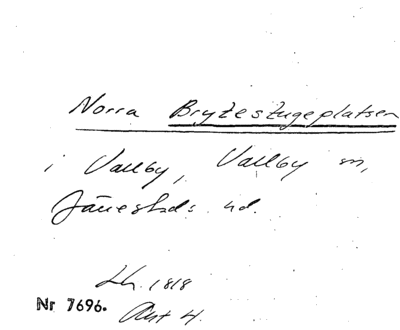 Norra Brytestugeplatsen
i Vallby, Vallby sn,
Järrestads hd.
Lh. 1818
Nr 7696. Akt 4.